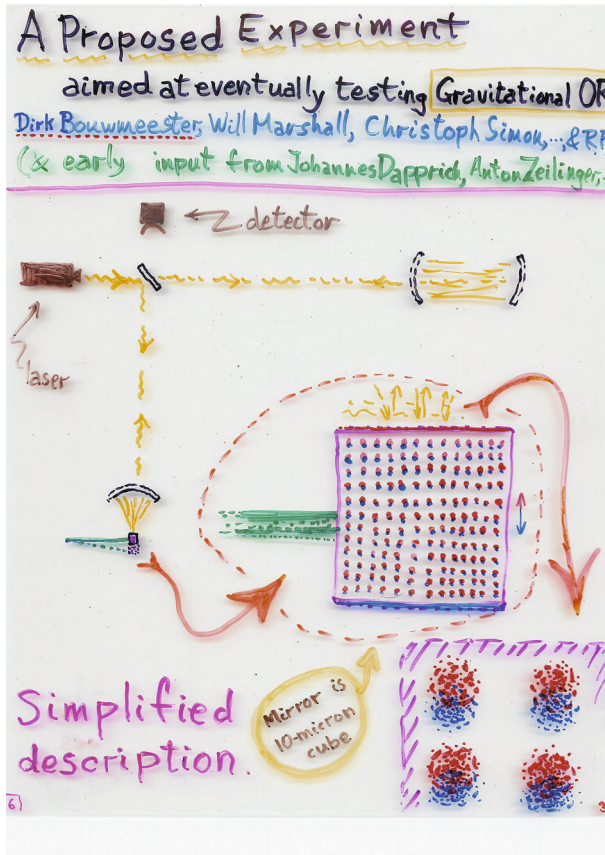 A Proposed Experiment
aimed at eventually testing Gravitational OR
Dirk Bouwmeester, Will Marshall, Christoph Simon,..., & RP
(& early input from Johannes Dapprich, Anton Zeilinger,..
detector
laser
Mirror is
10-micron
cube
Simplified
description.
6)
3